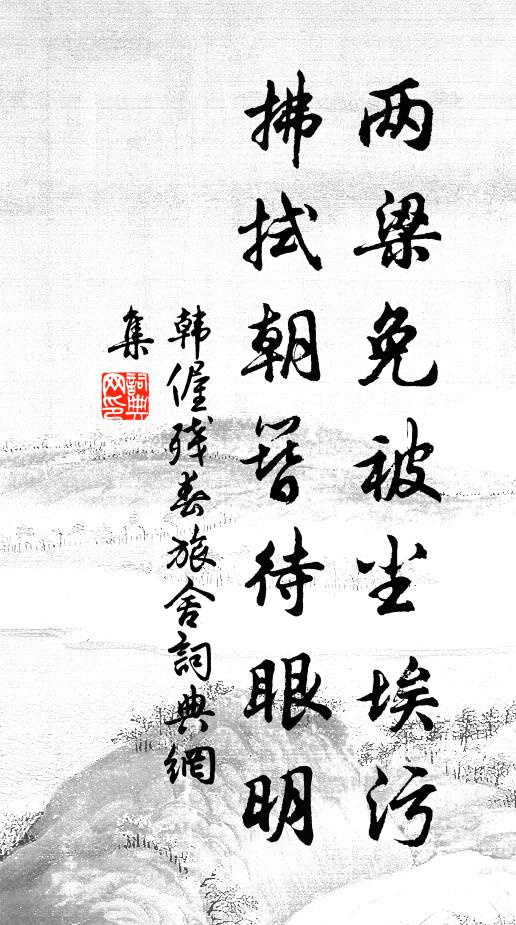 两梁免被尘埃污
拂拭朝簪待眼明
韩偓残春旅舍詞典網
集
詞典
网印